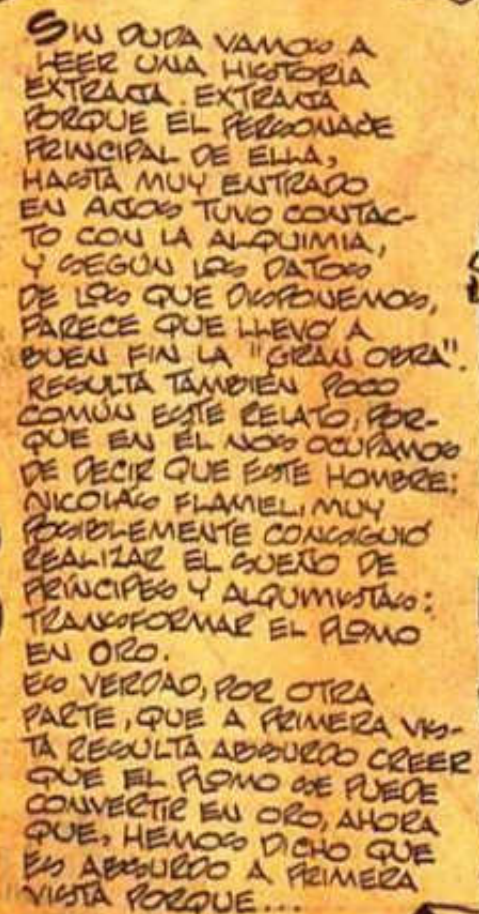 SIN DUDA VAMOS A
LEER UNA HISTORIA
EXTRAÑA. EXTRAÑA
PORQUE EL PERSONAJE
PRINCIPAL DE ELLA,
HASTA MUY ENTRADO
EN AÑOS TUVO CONTAC-
TO CON LA ALQUIMIA,
Y SEGÚN LOS DATOS
DE LOS QUE DISPONEMOS,
PARECE QUE LLEVÓ A
BUEN FIN LA "GRAN OBRA".
RESULTA TAMBIÉN POCO
COMÚN ESTE RELATO, POR-
QUE EN ÉL NOS OCUPAMOS
DE DECIR QUE ESTE HOMBRE;
NICOLÁS FLAMEL, MUY
POSIBLEMENTE CONSIGUIÓ
REALIZAR EL SUEÑO DE
PRÍNCIPES Y ALQUIMISTAS:
TRANSFORMAR EL PLOMO
EN ORO.
ES VERDAD, POR OTRA
PARTE, QUE A PRIMERA VIS-
TA RESULTA ABSURDO CREER
QUE EL PLOMO SE PUEDE
CONVERTIR EN ORO, AHORA
QUE, HEMOS DICHO QUE
ES ABSURDO A PRIMERA
VISTA PORQUE...